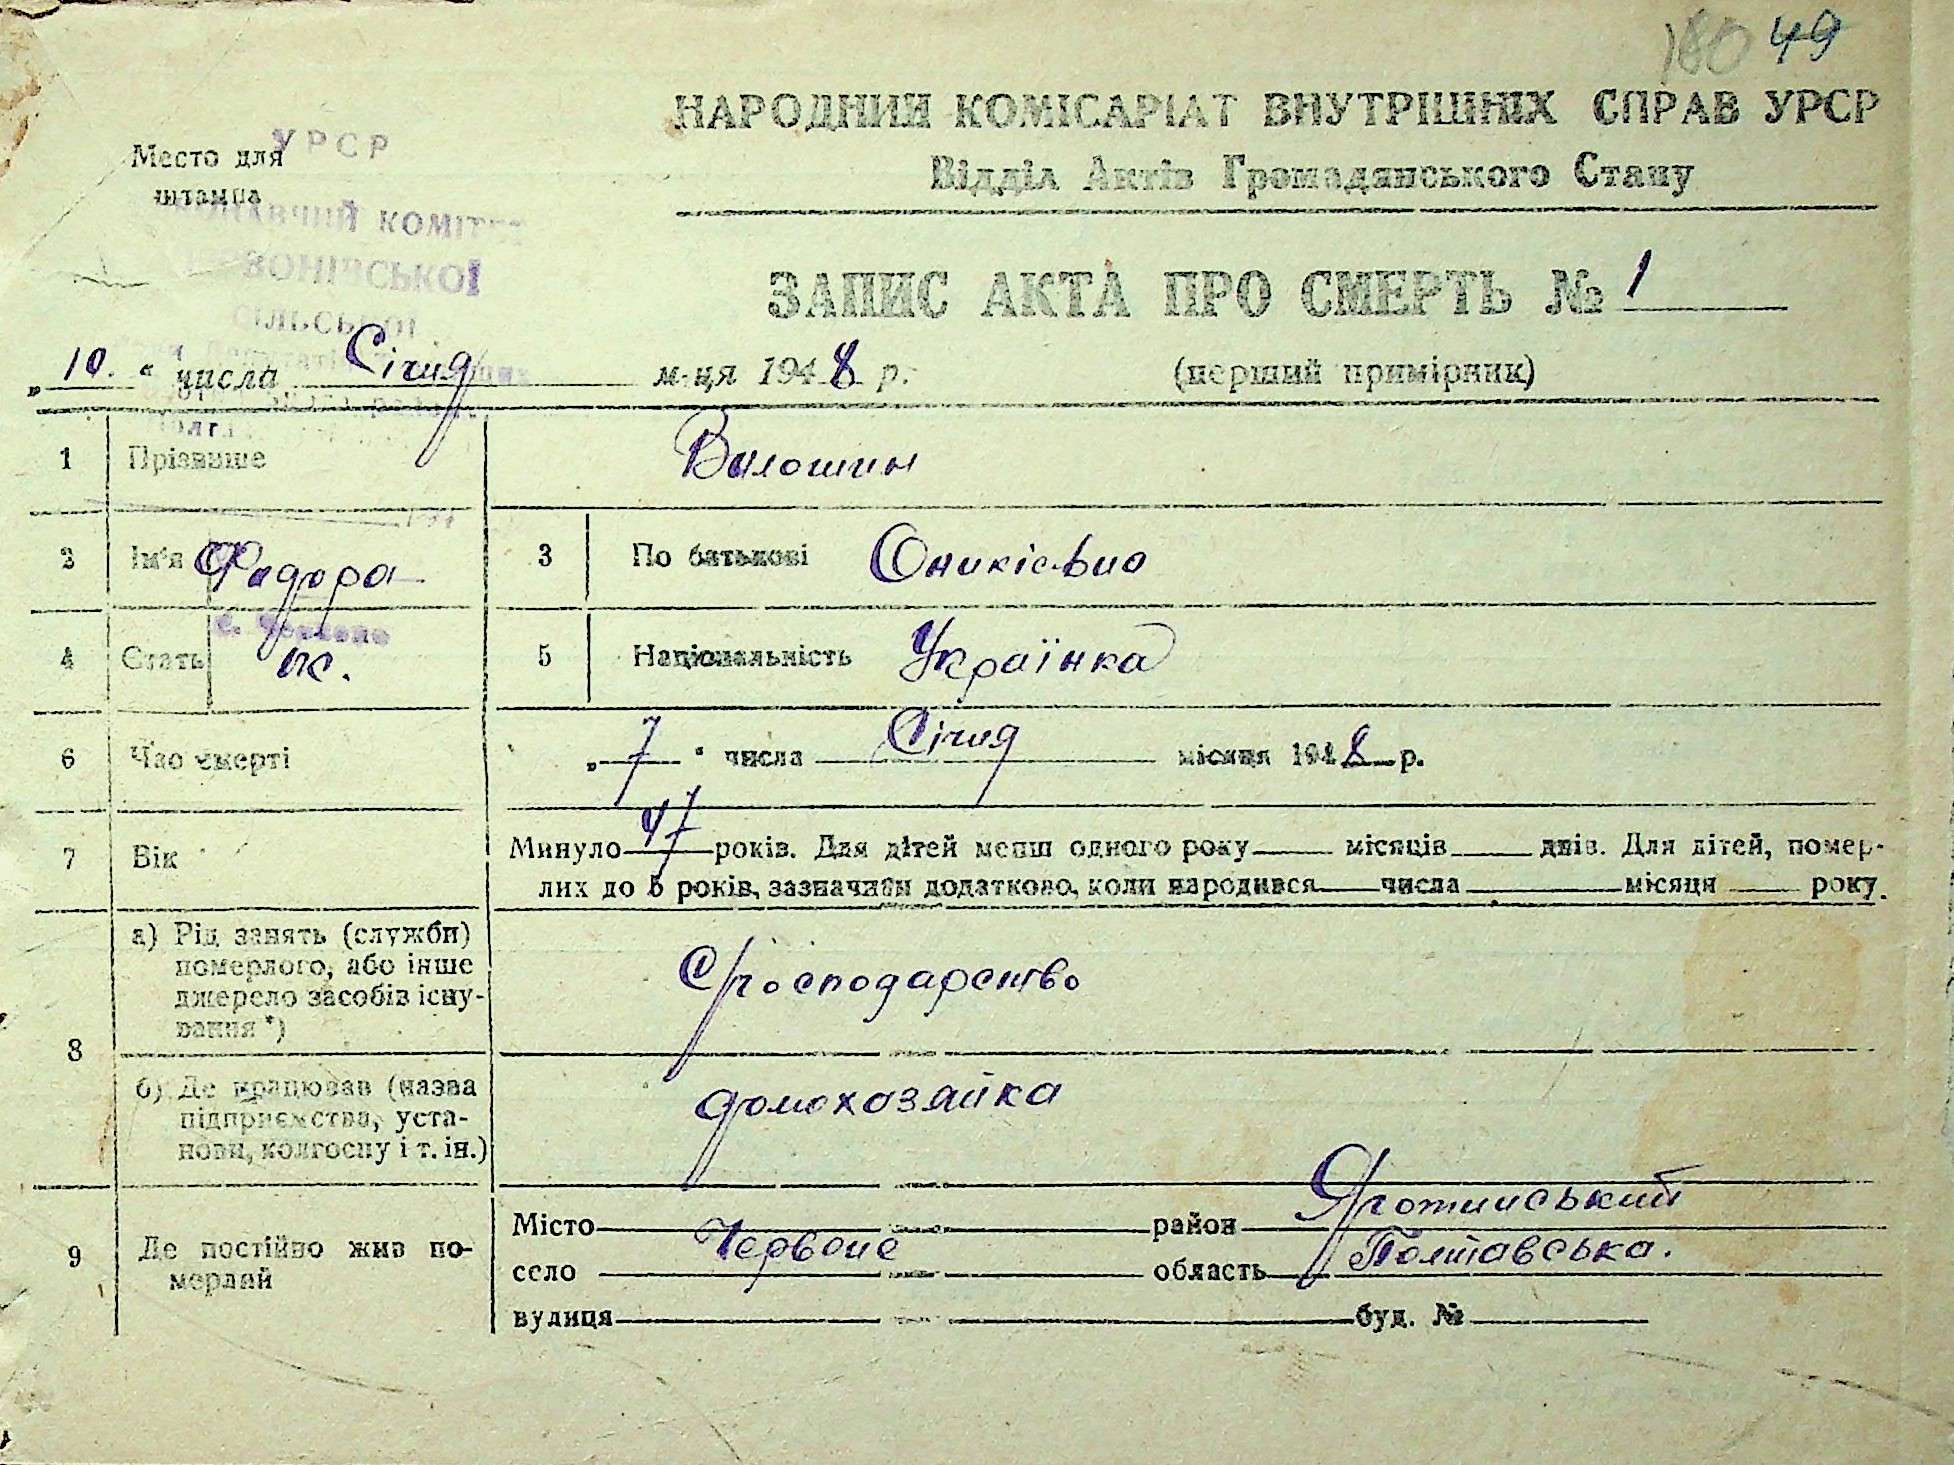 180 49
НАРОДНИЙ КОМІСАРІАТ ВНУТРІШНІХ СПРАВ УРСР
Відділ Актів Громадянського Стану
Место для
штампа
УРСР
КОМІТЕТ
СІЛЬСЬКОЇ
ЗАПИС АКТА ПРО СМЕРТЬ № 1
„10.“ числа Січня м-ця 1948 р. (перший примірник)
1 Прізвище Волошин
2 Ім'я Федора 3 По батькові Оникієвна
с. Червоне
4 Стать ж. 5 Національність Українка
6 Час смерті „7“ числа Січня місяця 1948 р.
7 Вік Минуло 47 років. Для дітей менш одного року місяців днів. Для дітей, помер-
лих до 5 років, зазначити додатково, коли народився числа місяця року.
8 а) Рід занять (служби)
померлого, або інше
джерело засобів існу-
вання *)
Сг господарство
б) Де працював (назва
підприємства, уста-
нови, колгоспу і т. ін.)
домохазяйка
9 Де постійно жив по-
мерлий
Місто район Яготинський
село Червоне область Полтавська.
вулиця буд. №